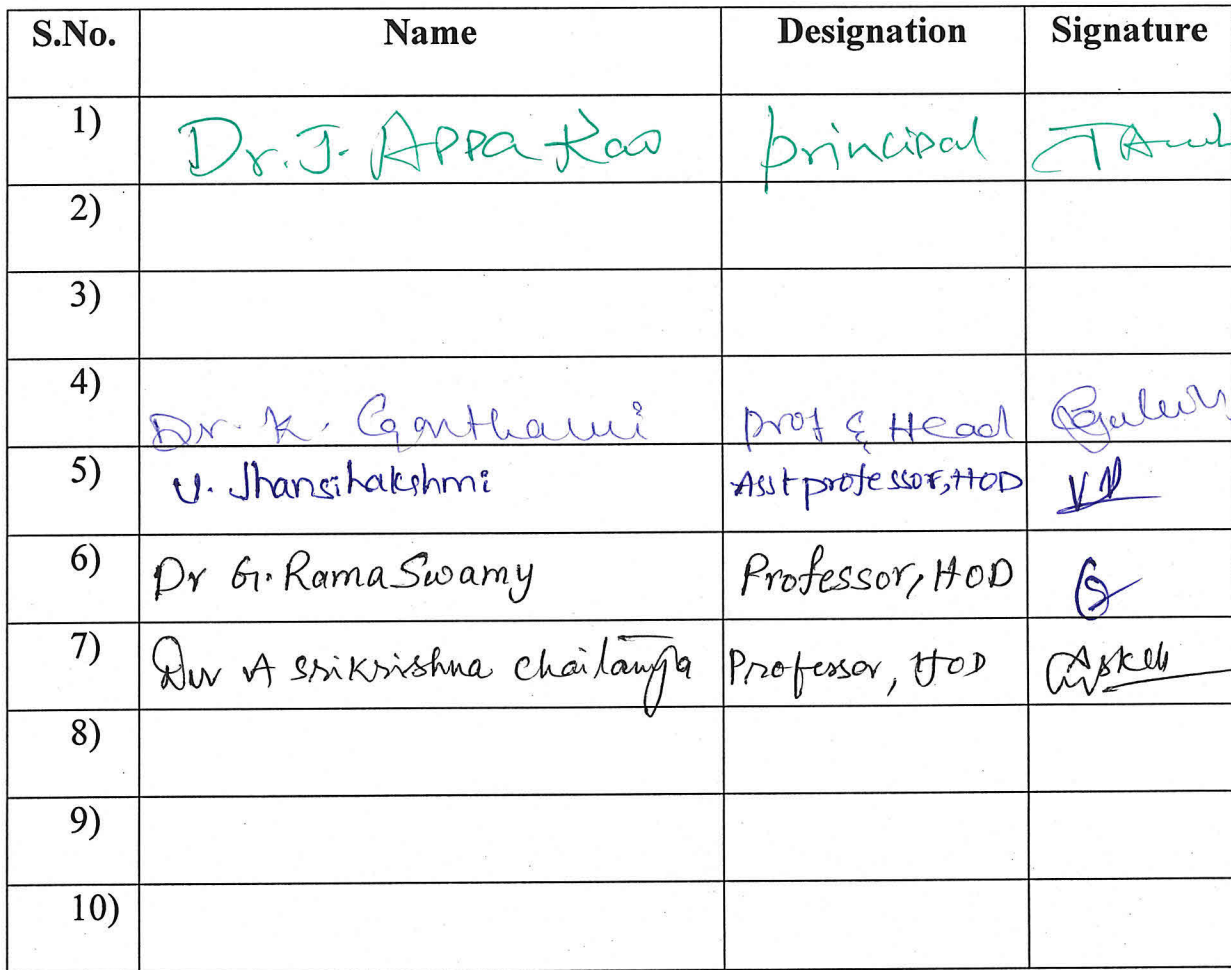 S.No. Name Designation Signature
1) Dr. J. Appa Rao principal
2)
3)
4) Dr. K. Gonthami prof & Head
5) V. Jhansilakshmi Asst professor, HOD
6) Dr G. Rama Swamy Professor, HOD
7) A Srikrishna Chaitanya Professor, HOD
8)
9)
10)